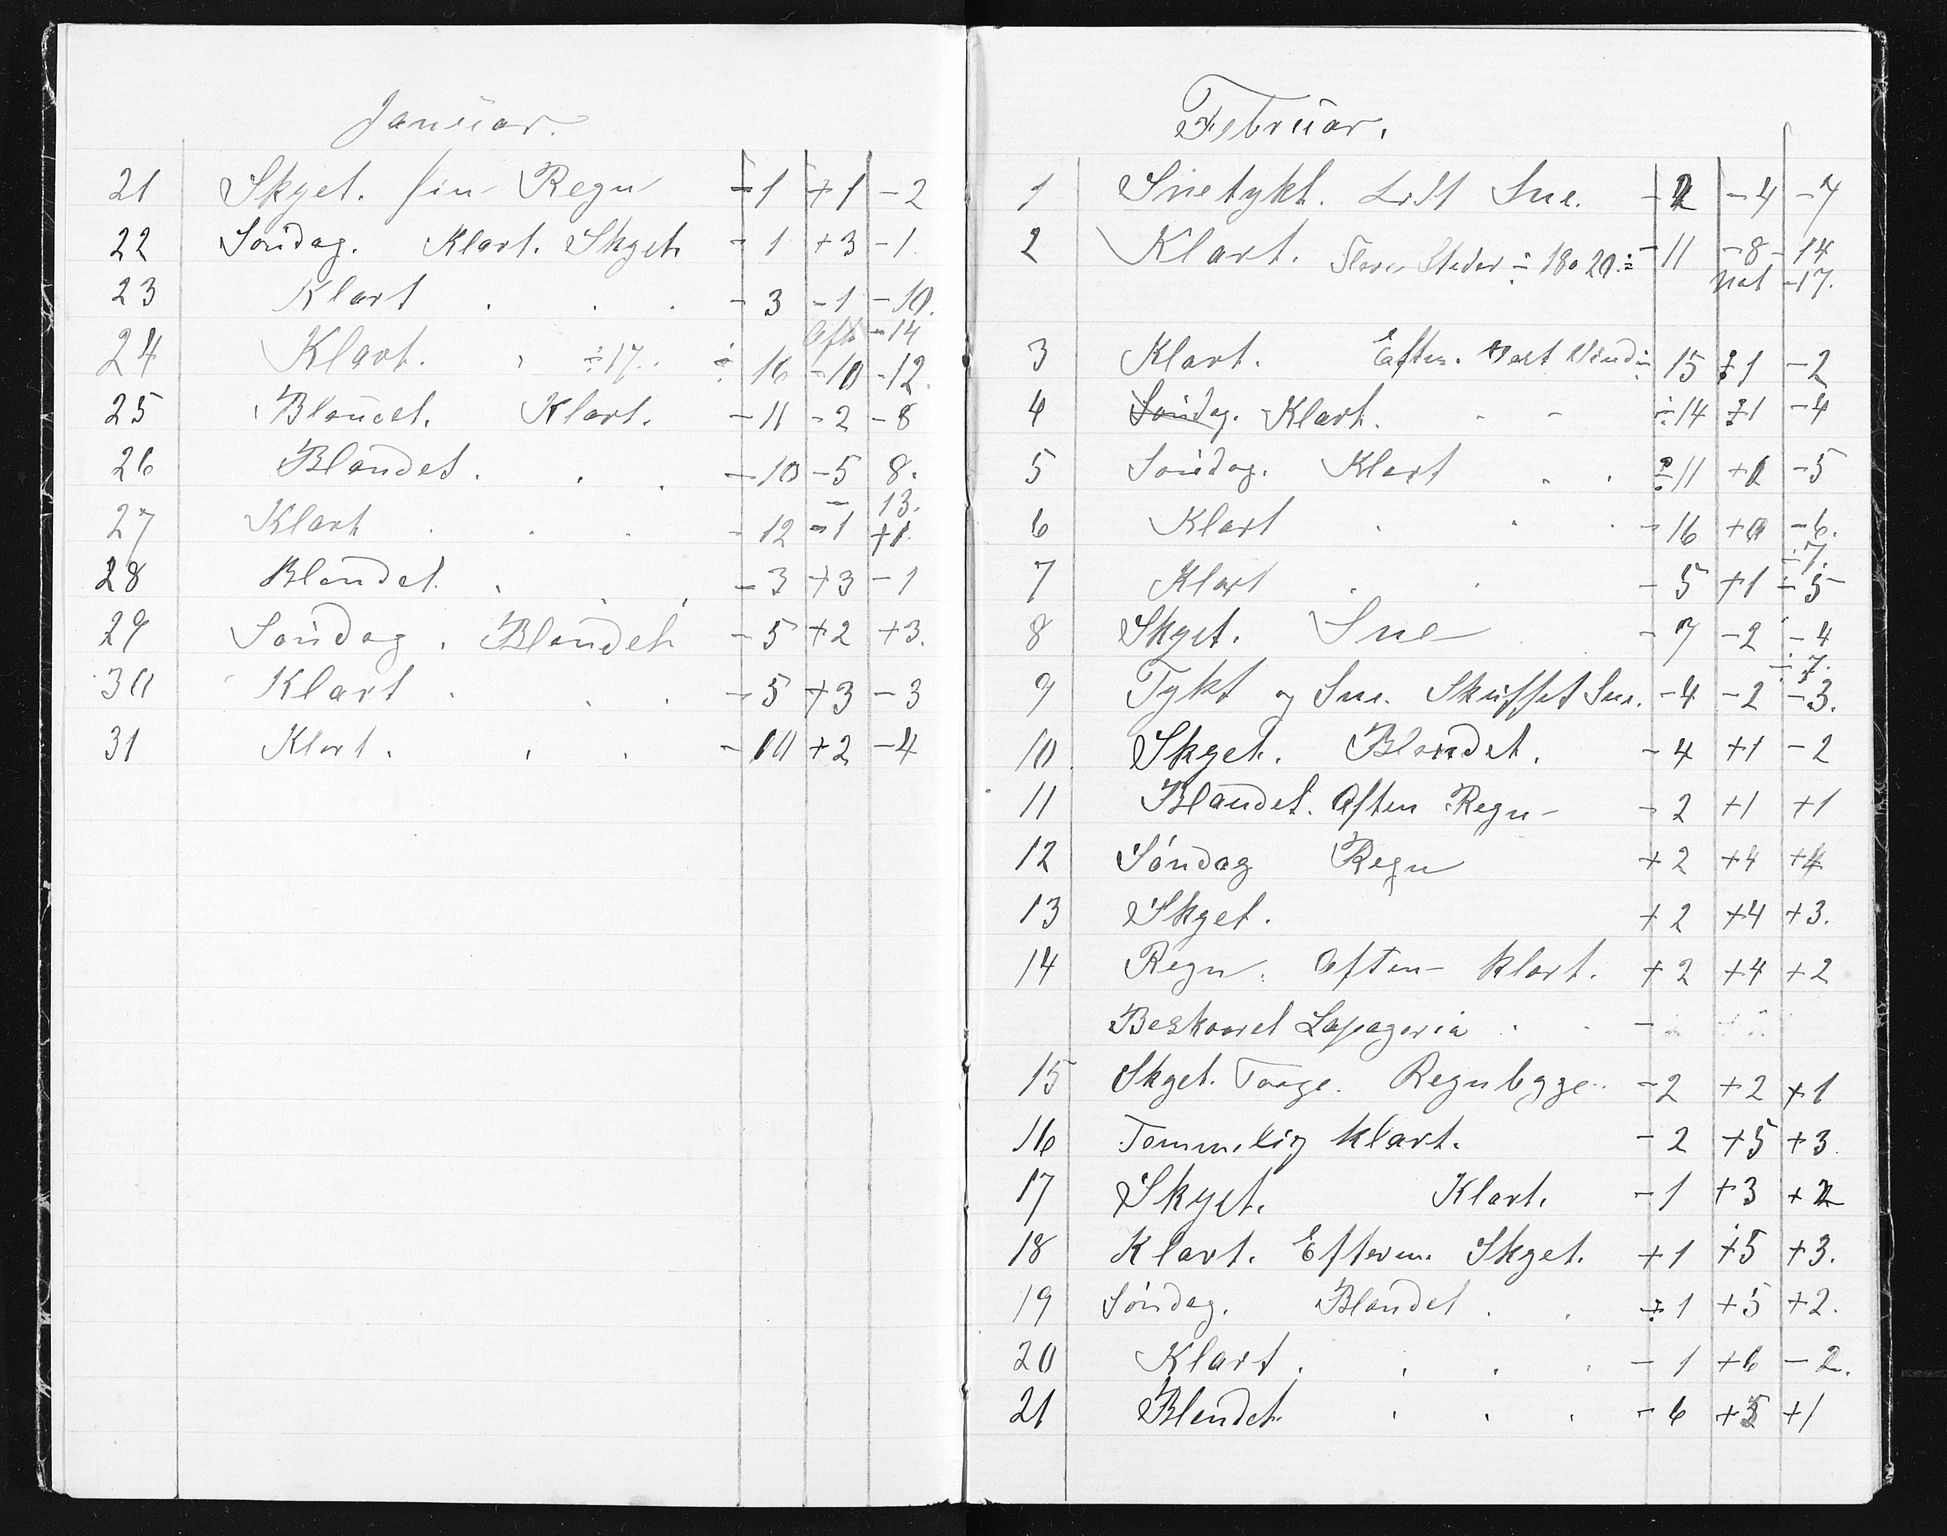 Januar.
21 Skyet. fin Regn -1 +1 -2
22 Søndag. Klart. Skyet -1 +3 -1
23 Klart . . . -3 -1 -10.
Aft -14
24 Klart. . ÷17.. ÷16 -10 -12.
25 Blandet. Klart. -11 -2 -8
26 Blandet. . . -10 -5 8.
- 13.
27 Klart . . . -12 -1 +1.
28 Blandet . . . -3 +3 -1
29 Søndag. Blandet -5 +2 +3.
30 Klart . . . -5 +3 -3
31 Klart. . . -10 +2 -4
Februar.
1 Snetykt. Lidt Sne. -2 -4 -7
2 Klart. Flere Steder ÷ 18 o 20 ÷ -11 -8 -14
Nat -17.
3 Klart. Efterm. Vind ÷ 15 ÷1 -2
4 Søndag. Klart. - - ÷14 ÷1 -4
5 Søndag. Klart . . ÷11 +0 -5
6 Klart . . . -16 +0 -6.
÷7.
7 Klart . . -5 +1 ÷5
8 Skyet. Sne -7 -2 -4
÷7.
9 Tykt og Sne. Skuffet Sne. -4 -2 -3.
10 Skyet. Blandet. -4 +1 -2
11 Blandet. Aften Regn -2 +1 +1
12 Søndag Regn +2 +4 +4
13 Skyet. +2 +4 +3.
14 Regn. Aften klart. +2 +4 +2
Beskaaret Lapageria . . -
15 Skyet. Taage. Regnbyge. -2 +2 +1
16 Temmelig klart. -2 +5 +3.
17 Skyet. Klart. -1 +3 +2
18 Klart. Efterm. Skyet. +1 +5 +3.
19 Søndag. Blandet . . ÷1 +5 +2.
20 Klart. . . . -1 +6 -2.
21 Blandet . . . -6 +3 +1